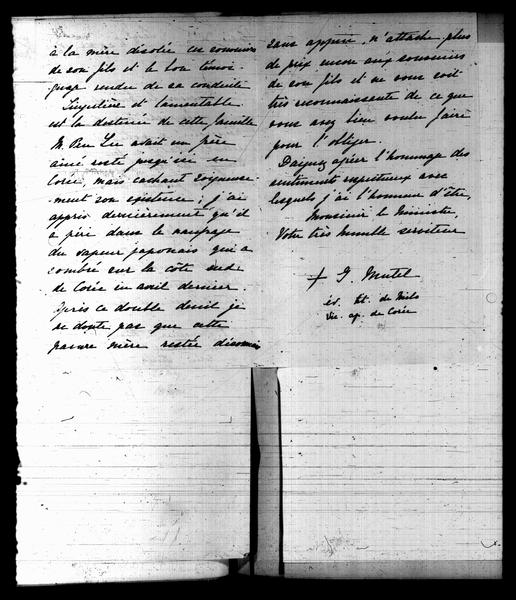 à la mère désolée ces souvenirs
de son fils et le bon témoi-
gnage rendu de sa conduite
Singulière et lamentable
est la destinée de cette famille
M. Pien Sou avait un frère
ainé resté jusqu'ici en
Corée, mais cachant soigneuse-
ment son existence ; j'ai
appris dernièrement qu'il
a péri dans le naufrage
du vapeur japonais qui a
sombré sur la côte sud
de Corée en avril dernier.
Après ce double deuil je
ne doute pas que cette
pauvre mère restée désormais
sans appui, n'attache plus
de prix encore aux souvenirs
de son fils et ne vous soit
très reconnaissante de ce que
vous avez bien voulu faire
pour l'obliger.
Daignez agréer l'hommage des
sentiments respectueux avec
lesquels j'ai l'honneur d'être,
Monsieur le Ministre,
Votre très humble serviteur
+ G. Mutel
év. tit. de Milo
vic. ap. de Corée